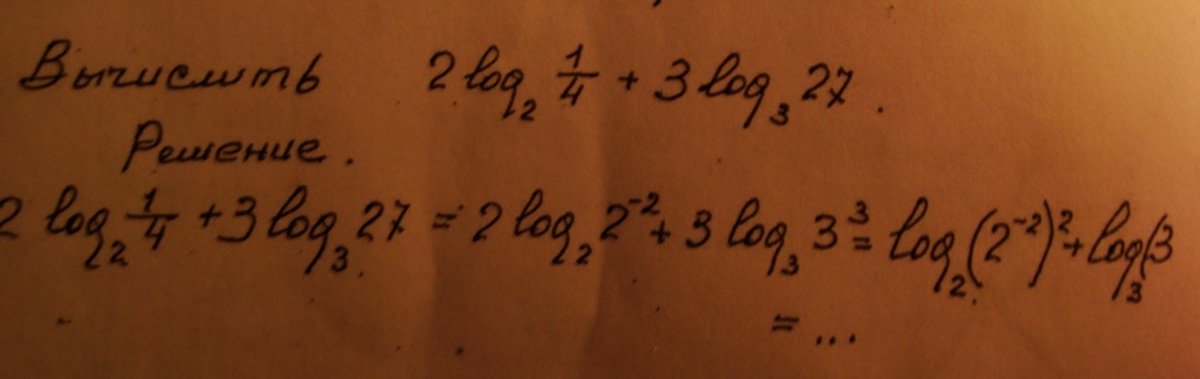 Вычислить 2 log₂ 1/4 + 3 log₃ 27.
Решение.
2 log₂ 1/4 + 3 log₃ 27 = 2 log₂ 2⁻² + 3 log₃ 3³ = log₂ (2⁻²)² + log₃ (3
= ...